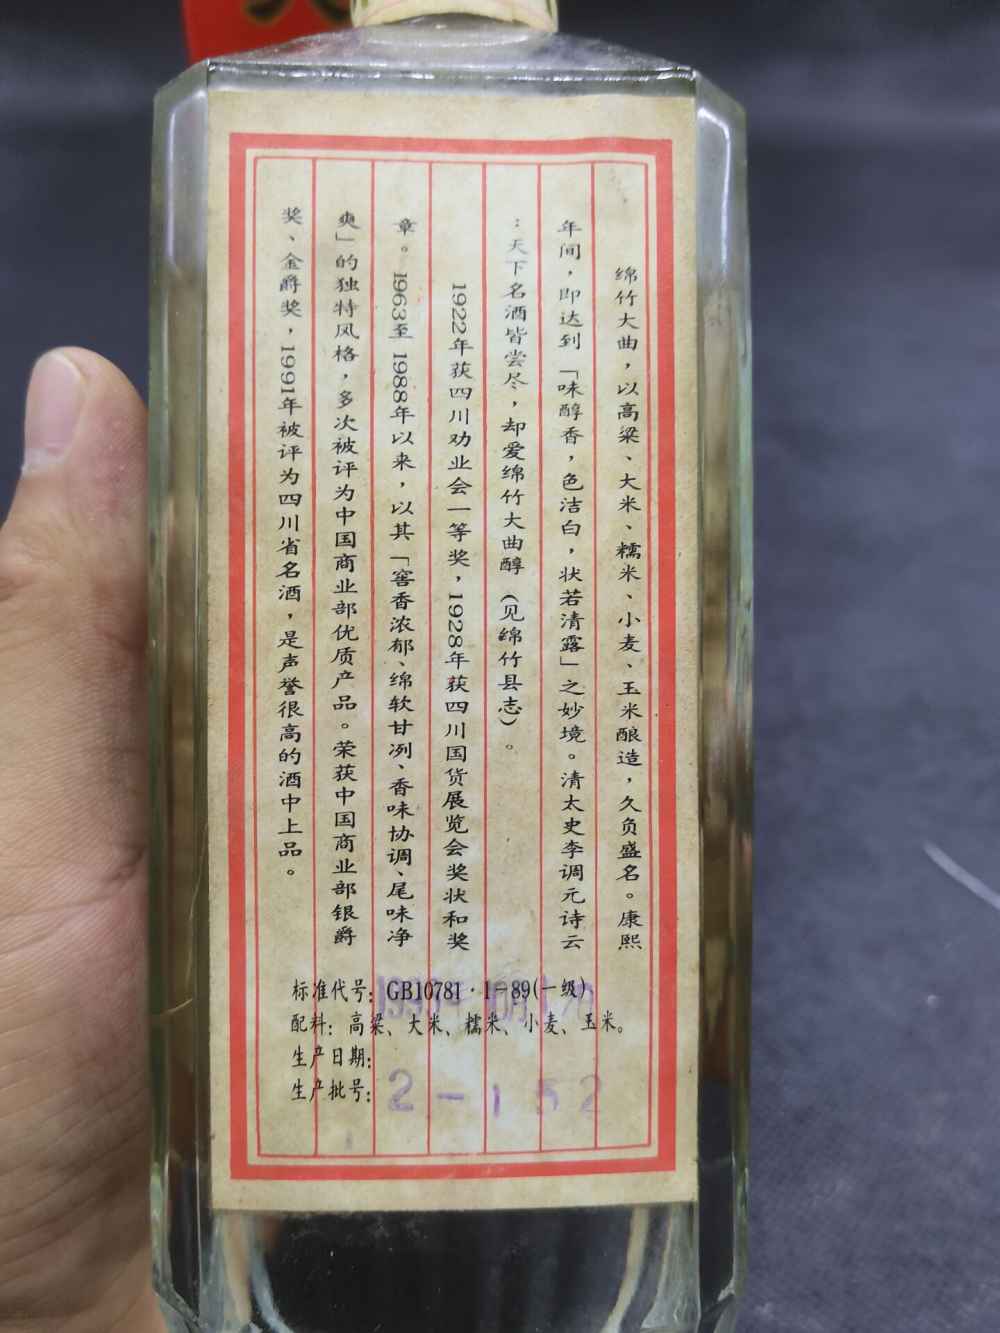 绵竹大曲，以高粱、大米、糯米、小麦、玉米酿造，久负盛名。康熙
年间，即达到「味醇香，色洁白，状若清露」之妙境。清太史李调元诗云
：天下名酒皆尝尽，却爱绵竹大曲醇（见绵竹县志）。
1922年获四川劝业会一等奖，1928年获四川国货展览会奖状和奖
章。1963至1988年以来，以其「窖香浓郁、绵软甘冽、香味协调、尾味净
爽」的独特风格，多次被评为中国商业部优质产品。荣获中国商业部银爵
奖、金爵奖，1991年被评为四川省名酒，是声誉很高的酒中上品。
标准代号：GB10781·1-89(一级)
配料：高粱、大米、糯米、小麦、玉米。
生产日期：
生产批号：2-152